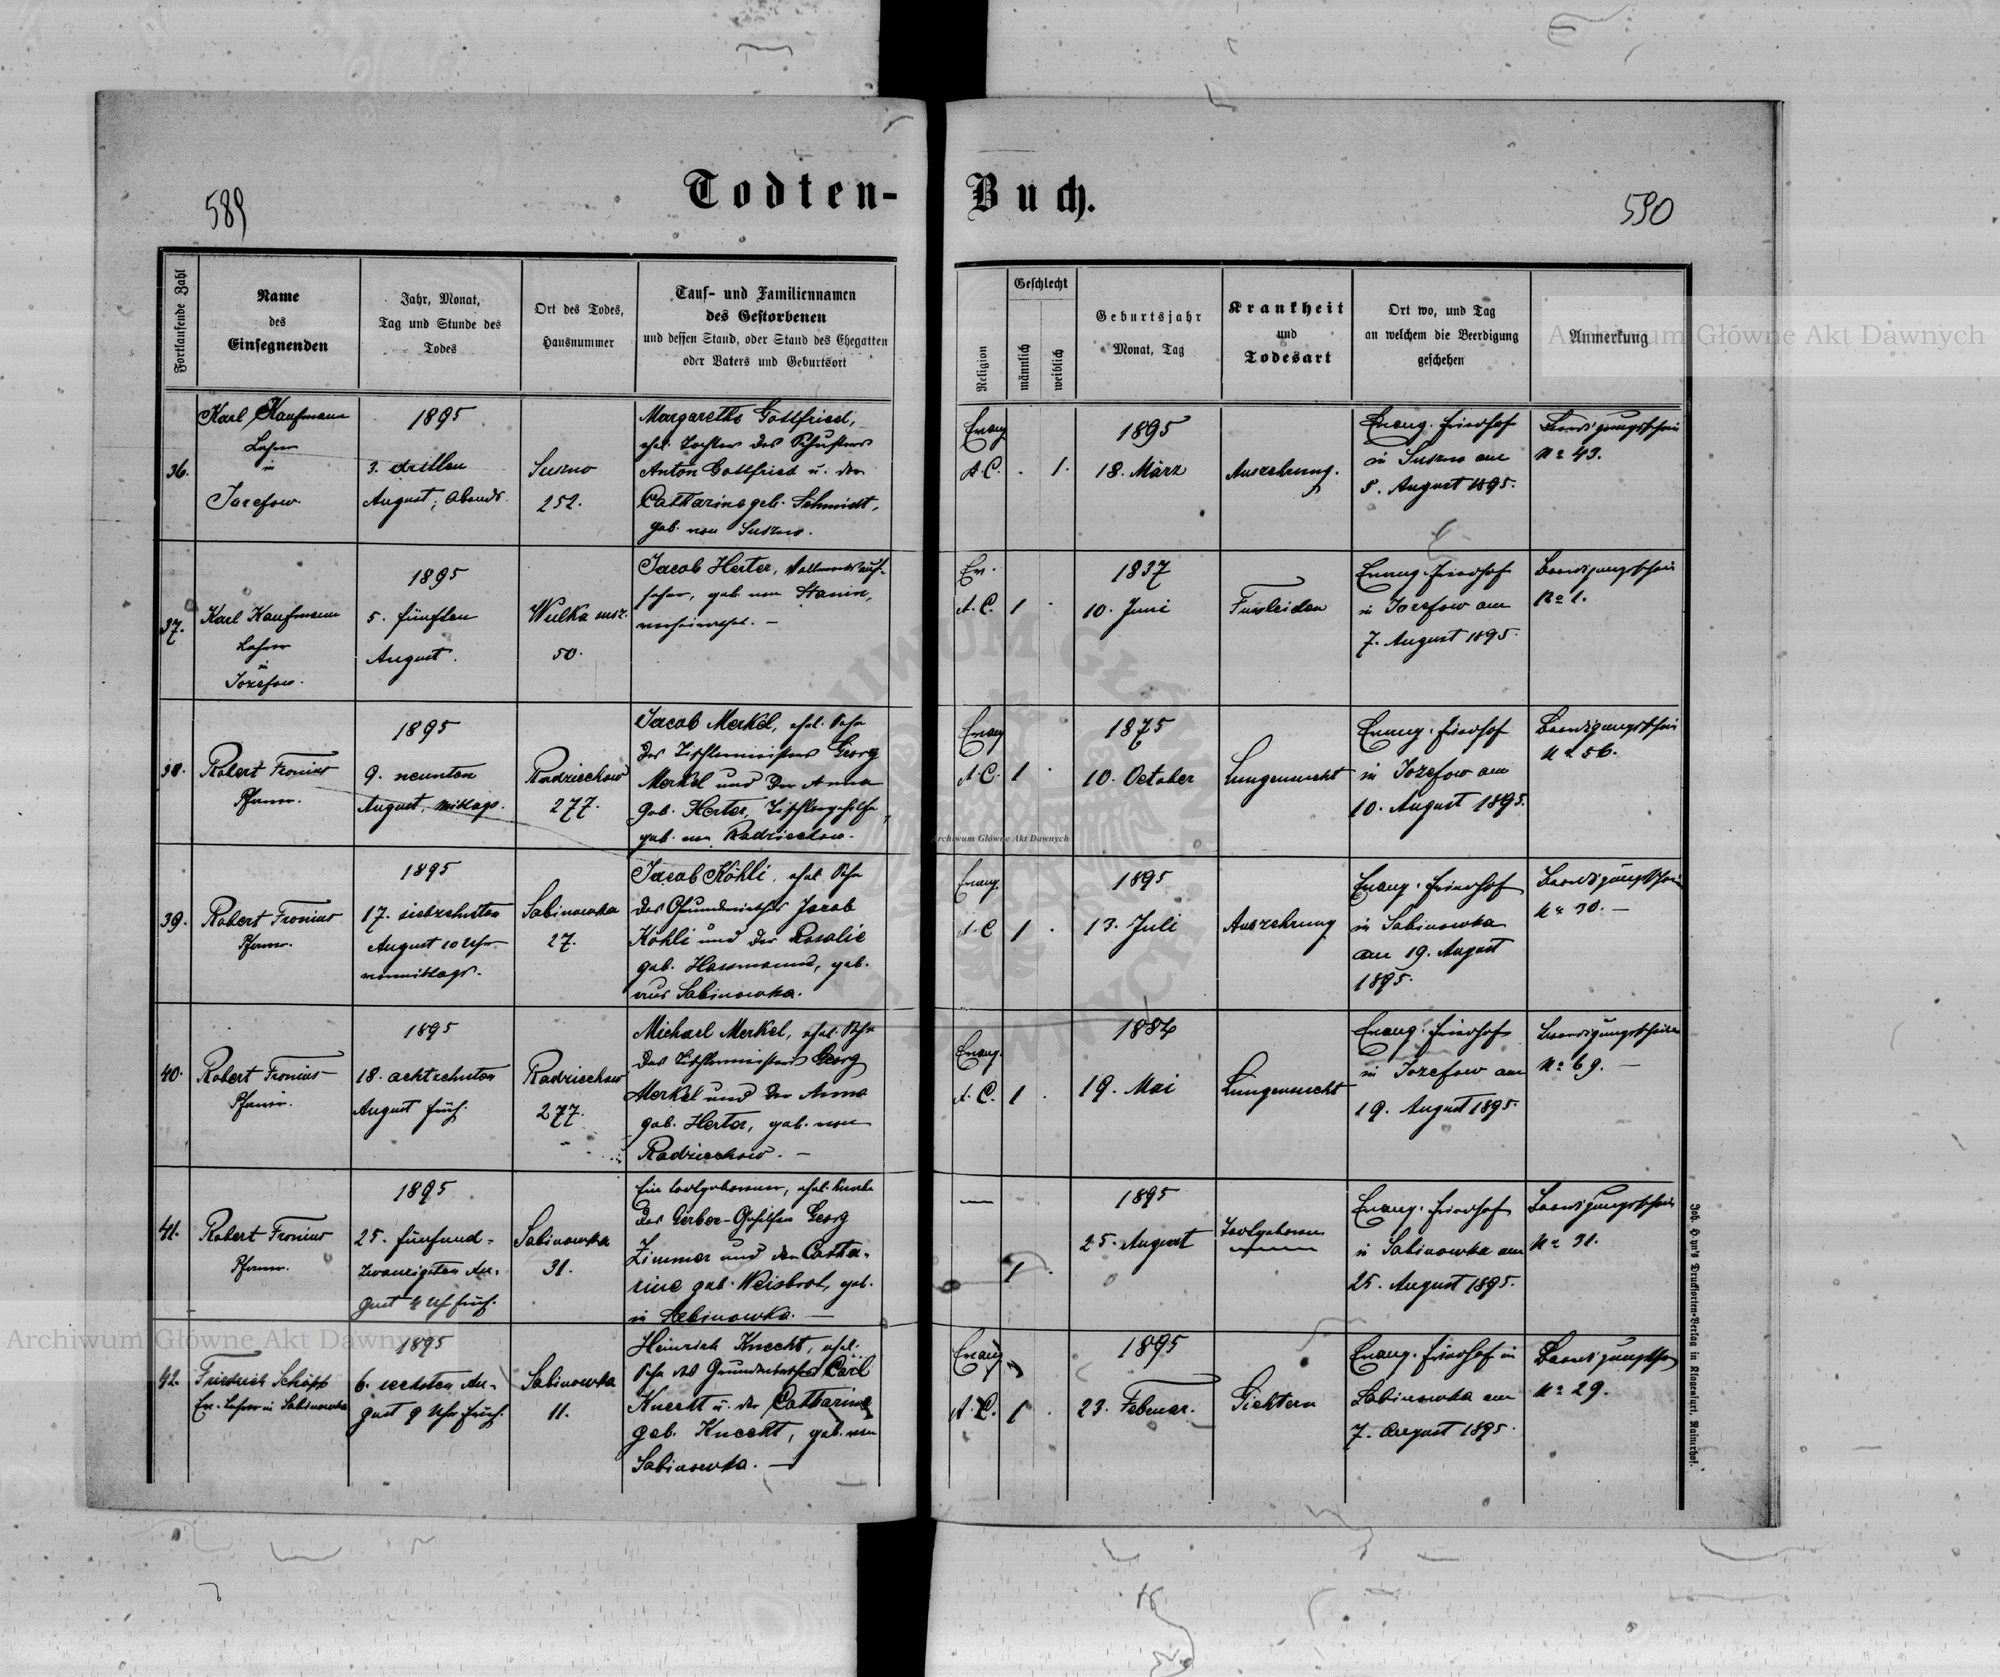 Todten-Buch.
589
590
Fortlaufende Zahl
Name
des
Einsegnenden
Jahr, Monat,
Tag und Stunde des
Todes
Ort des Todes,
Hausnummer
Tauf- und Familiennamen
des Gestorbenen
und dessen Stand, oder Stand des Ehegatten
oder Vaters und Geburtsort
Religion
Geschlecht
männlich
weiblich
Geburtsjahr
Monat, Tag
Krankheit
und
Todesart
Ort wo, und Tag
an welchem die Beerdigung
geschehen
Anmerkung
36.
Karl Kaufmann
Lehrer
in
Jozefow.
1895
3. dritten
August, Abends.
Suszno
252.
Margaretha Gottfried,
ehel. Tochter des Schusters
Anton Gottfried u. der
Catharina geb. Schmidt,
geb. von Suszno.
Evang
A.C.
1.
1895
18. März
Auszehrung.
Evang. Friedhof
in Suszno am
5. August 1895.
Beerdigungsschein
No 43.
37.
Karl Kaufmann
Lehrer
in
Jozefow.
1895
5. fünften
August.
Wulka susz.
50.
Jacob Herter,
geb. von Stanin,
verheirathet. —
Ev.
A.C.
1
1837
10. Juni
Fussleiden
Evang. Friedhof
in Jozefow am
7. August 1895.
Beerdigungsschein
No 1.
38.
Robert Fronius
Pfarrer.
1895
9. neunten
August, mittags.
Radziechow
277.
Jacob Merkel, ehel. Sohn
des Tischlermeisters Georg
Merkel und der Anna
geb. Herter, Tischlergehilfe,
geb. von Radziechow.
Evang
A.C.
1
1875
10. October
Lungensucht
Evang. Friedhof
in Jozefow am
10. August 1895.
Beerdigungsschein
No 56.
39.
Robert Fronius
Pfarrer.
1895
17. siebzehnten
August 10 Uhr
vormittags.
Sabinowka
27.
Jacob Köhli, ehel. Sohn
des Grundwirthes Jacob
Köhli und der Rosalie
geb. Hassmann, geb.
aus Sabinowka.
Evang.
A.C
1
1895
13. Juli
Auszehrung
Evang. Friedhof
in Sabinowka
am 19. August
1895.
Beerdigungsschein
No 30. —
40.
Robert Fronius
Pfarrer.
1895
18. achtzehnten
August früh.
Radziechow
277.
Michael Merkel, ehel. Sohn
des Tischlermeisters Georg
Merkel und der Anna
geb. Herter, geb. von
Radziechow. —
Evang.
A.C.
1
1884
19. Mai
Lungensucht
Evang. Friedhof
in Jozefow am
19. August 1895.
Beerdigungsschein
No 69. —
41.
Robert Fronius
Pfarrer.
1895
25. fünfund-
zwanzigsten Au-
gust 4 Uhr früh.
Sabinowka
31.
Ein todtgeborener, ehel. Knabe
des Gerber-Gehilfen Georg
Zimmer und der Catha-
rine geb. Weisbrot, geb.
in Sabinowka. —
—
1
1895
25. August
Todtgeboren
Evang. Friedhof
in Sabinowka am
25. August 1895.
Beerdigungsschein
No 31.
42.
Friedrich Schöpp
Ev. Lehrer in Sabinowka
1895
6. sechsten Au-
gust 9 Uhr früh.
Sabinowka
11.
Heinrich Knecht, ehel.
Sohn des Grundwirthes Carl
Knecht u. der Catharina
geb. Knecht, geb. von
Sabinowka. —
Evang
A.C.
1
1895
23. Februar.
Gichtern
Evang. Friedhof in
Sabinowka am
7. August 1895.
No 29.
Archiwum Główne Akt Dawnych
Archiwum Główne Akt Dawnych
Archiwum Główne Akt Dawnych